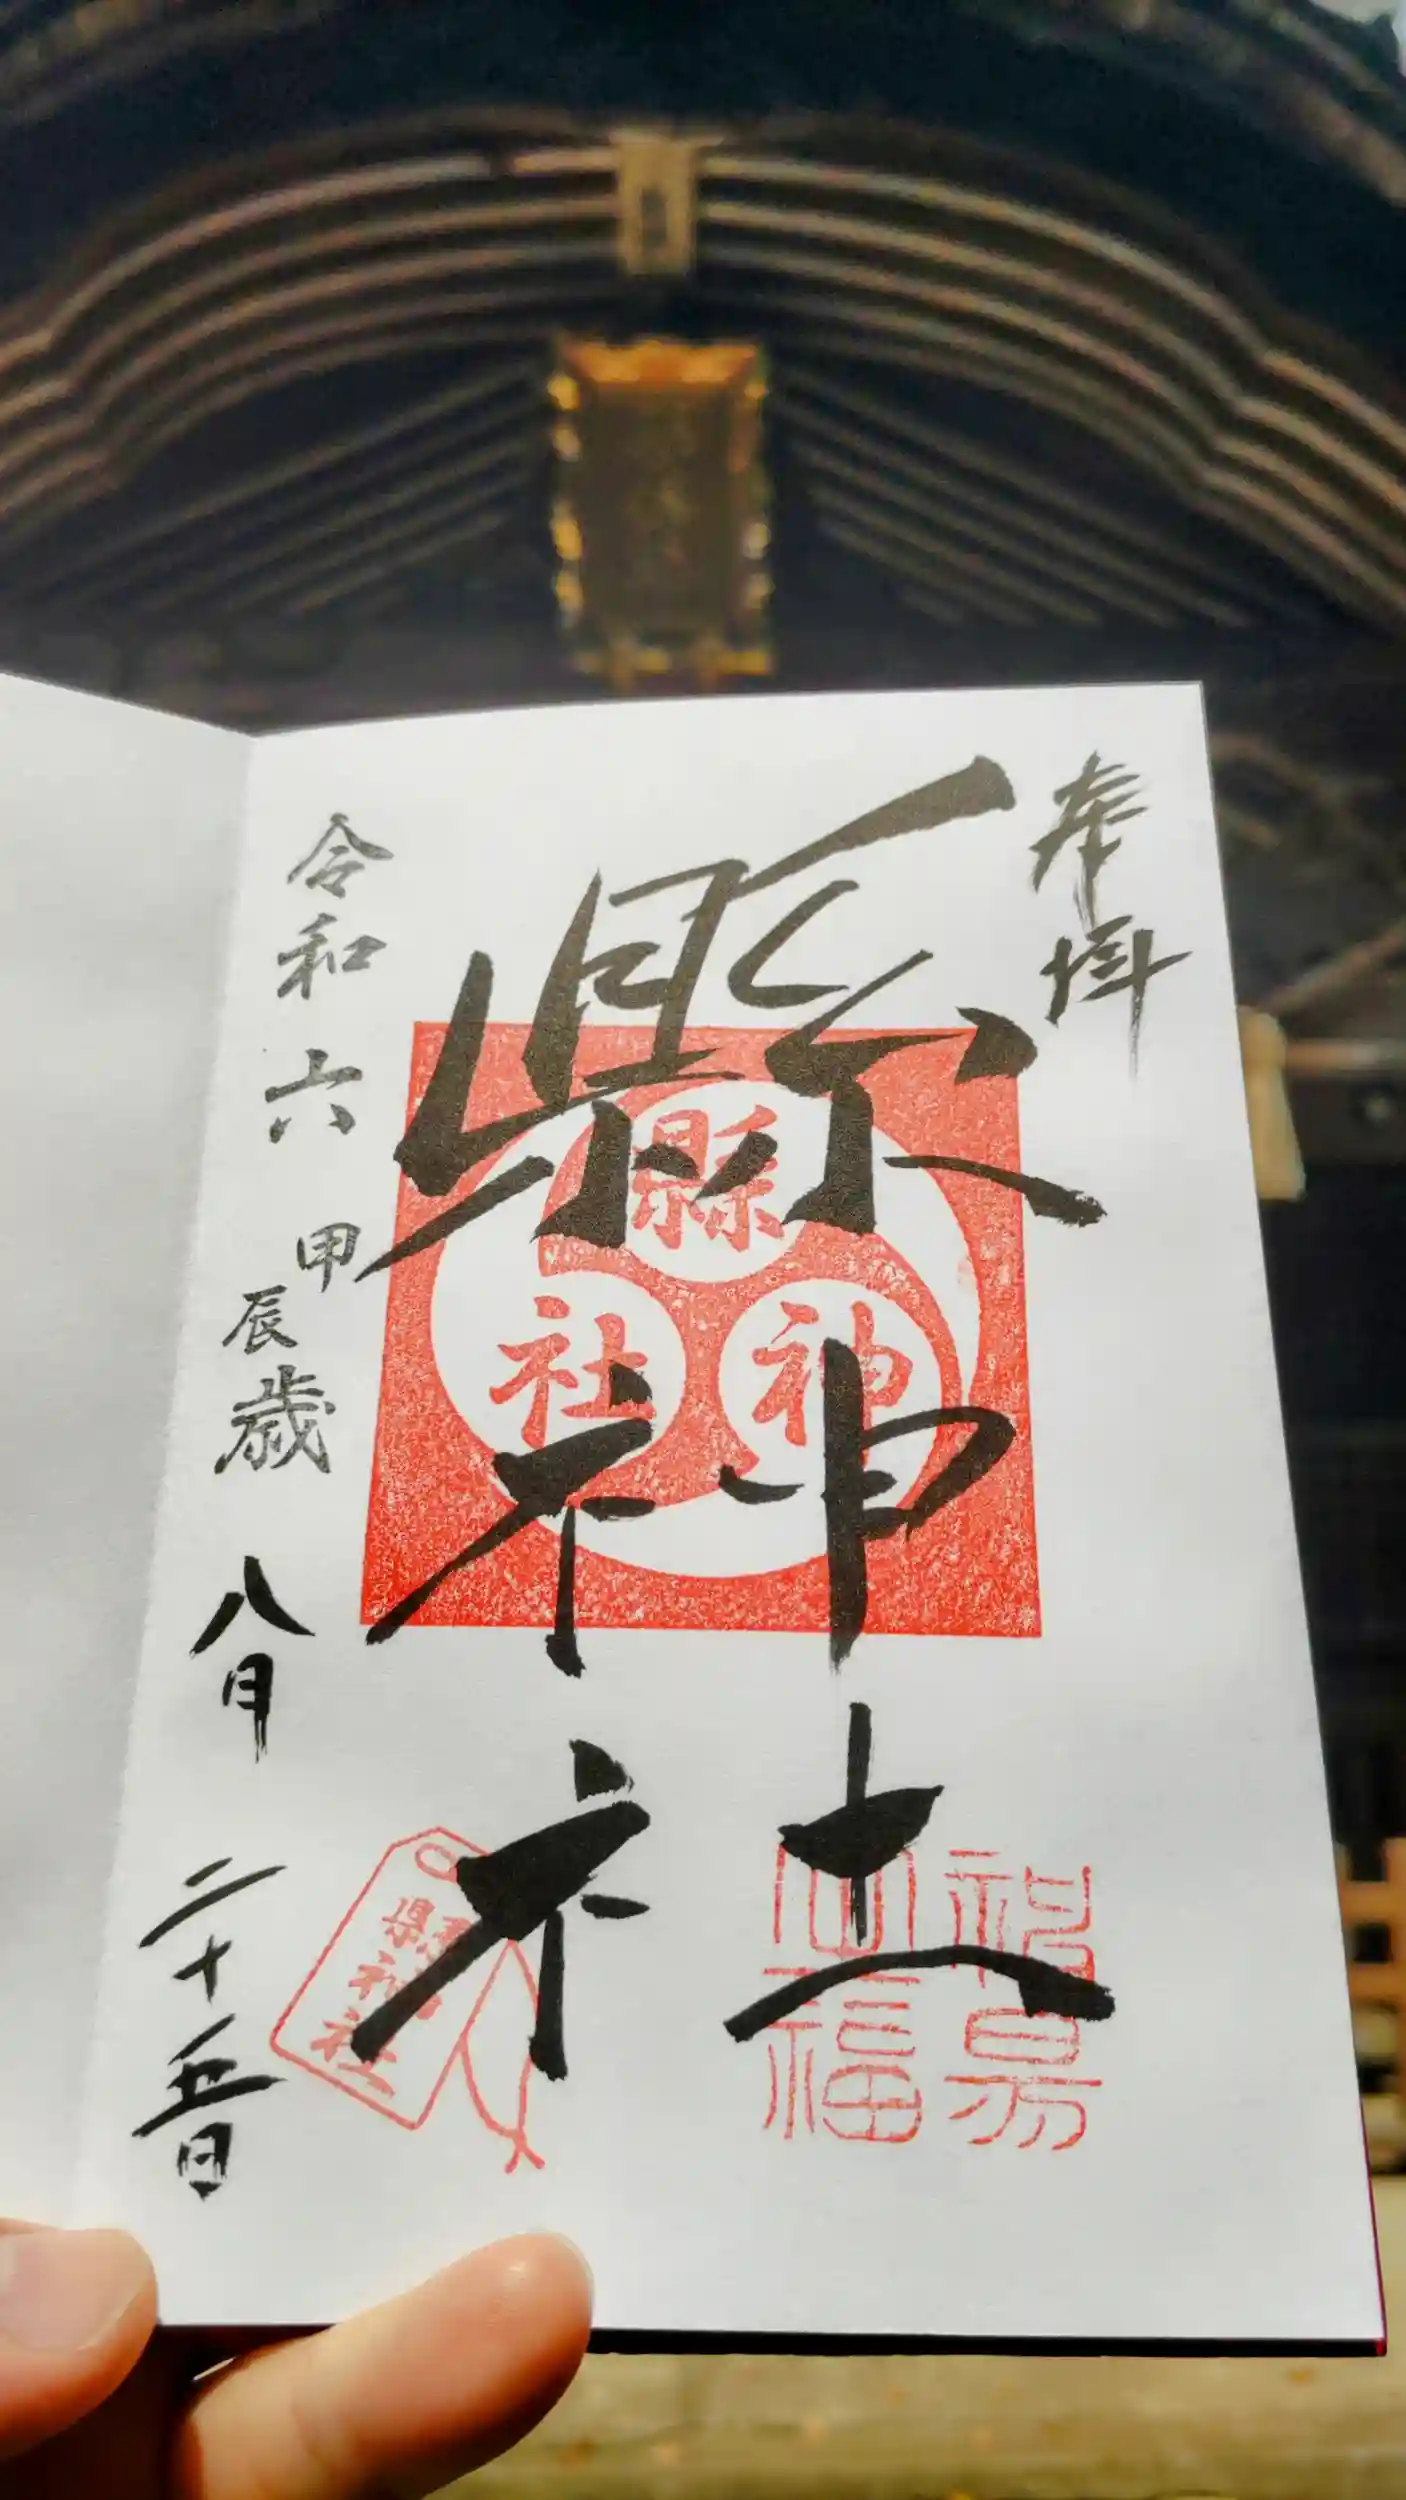 奉拝
縣神社
縣
神
社
縣神社
令和六甲辰歳八月二十五日